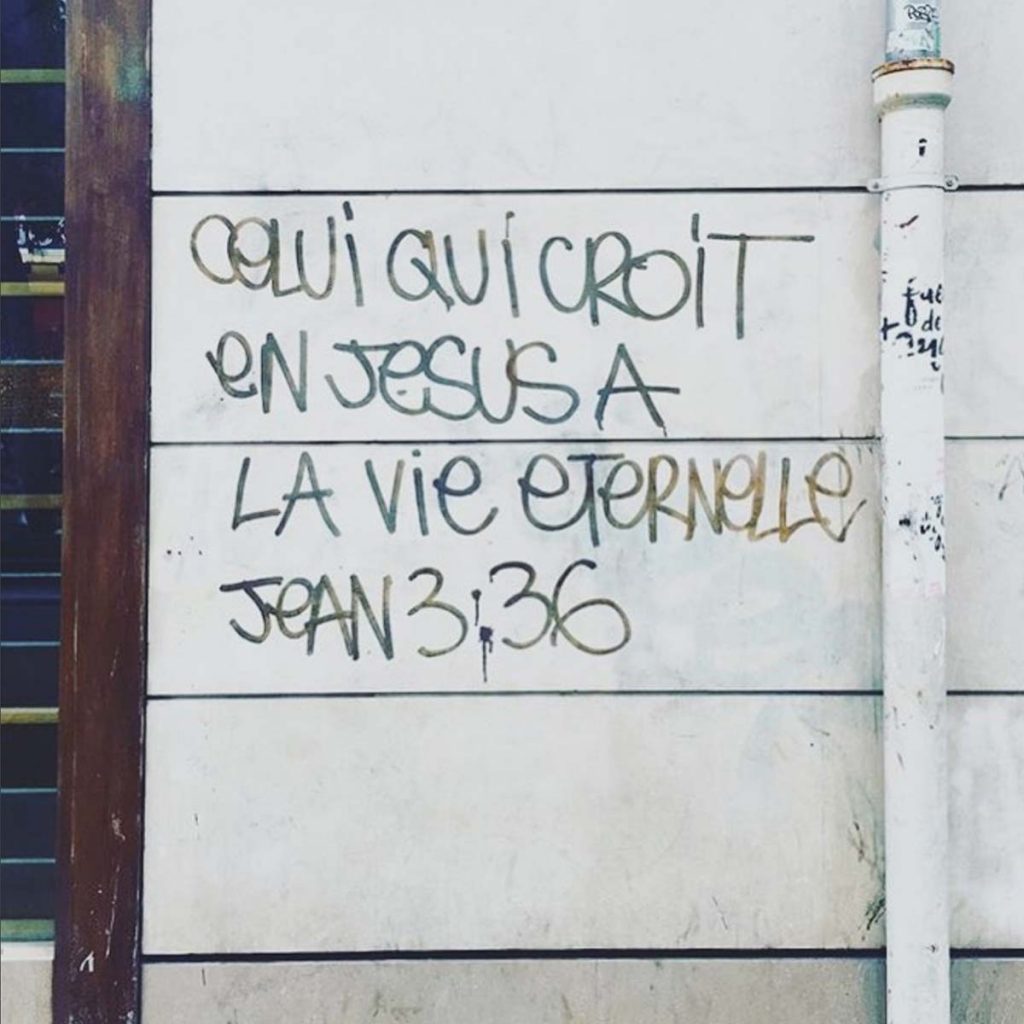 Celui qui croit
en Jesus a
la vie eternelle
Jean 3:36